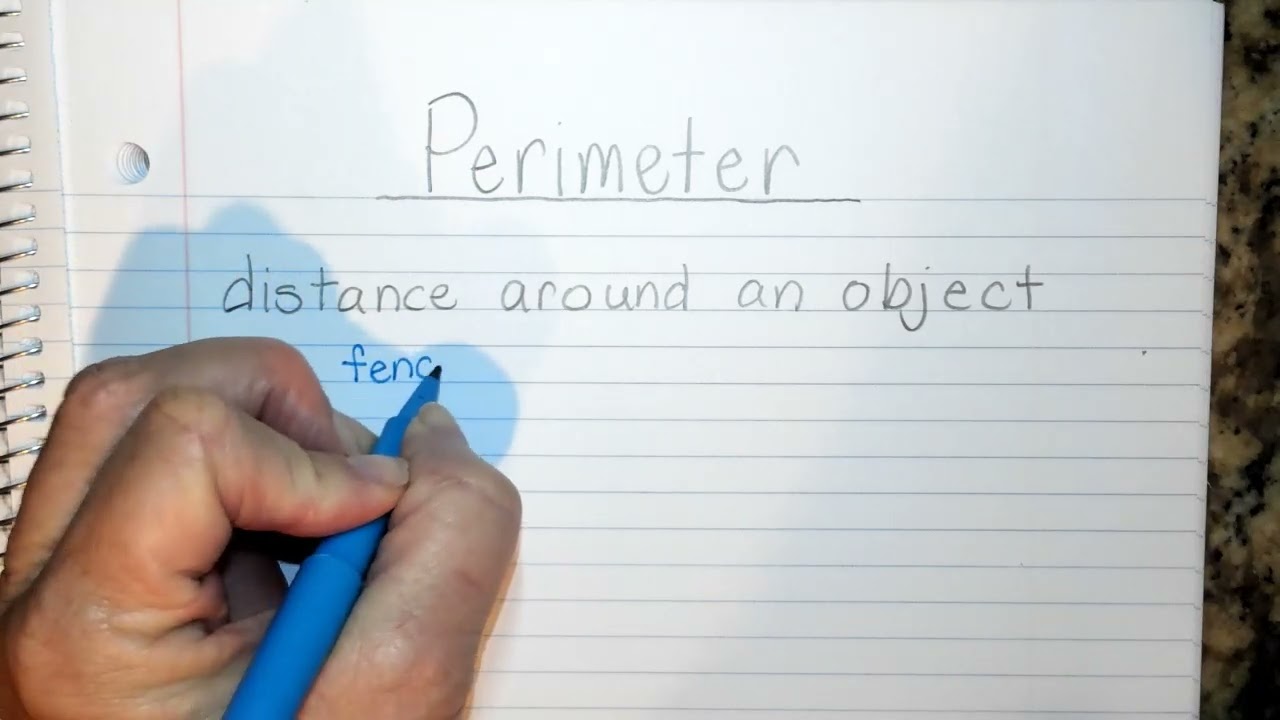 Perimeter
distance around an object
fenc